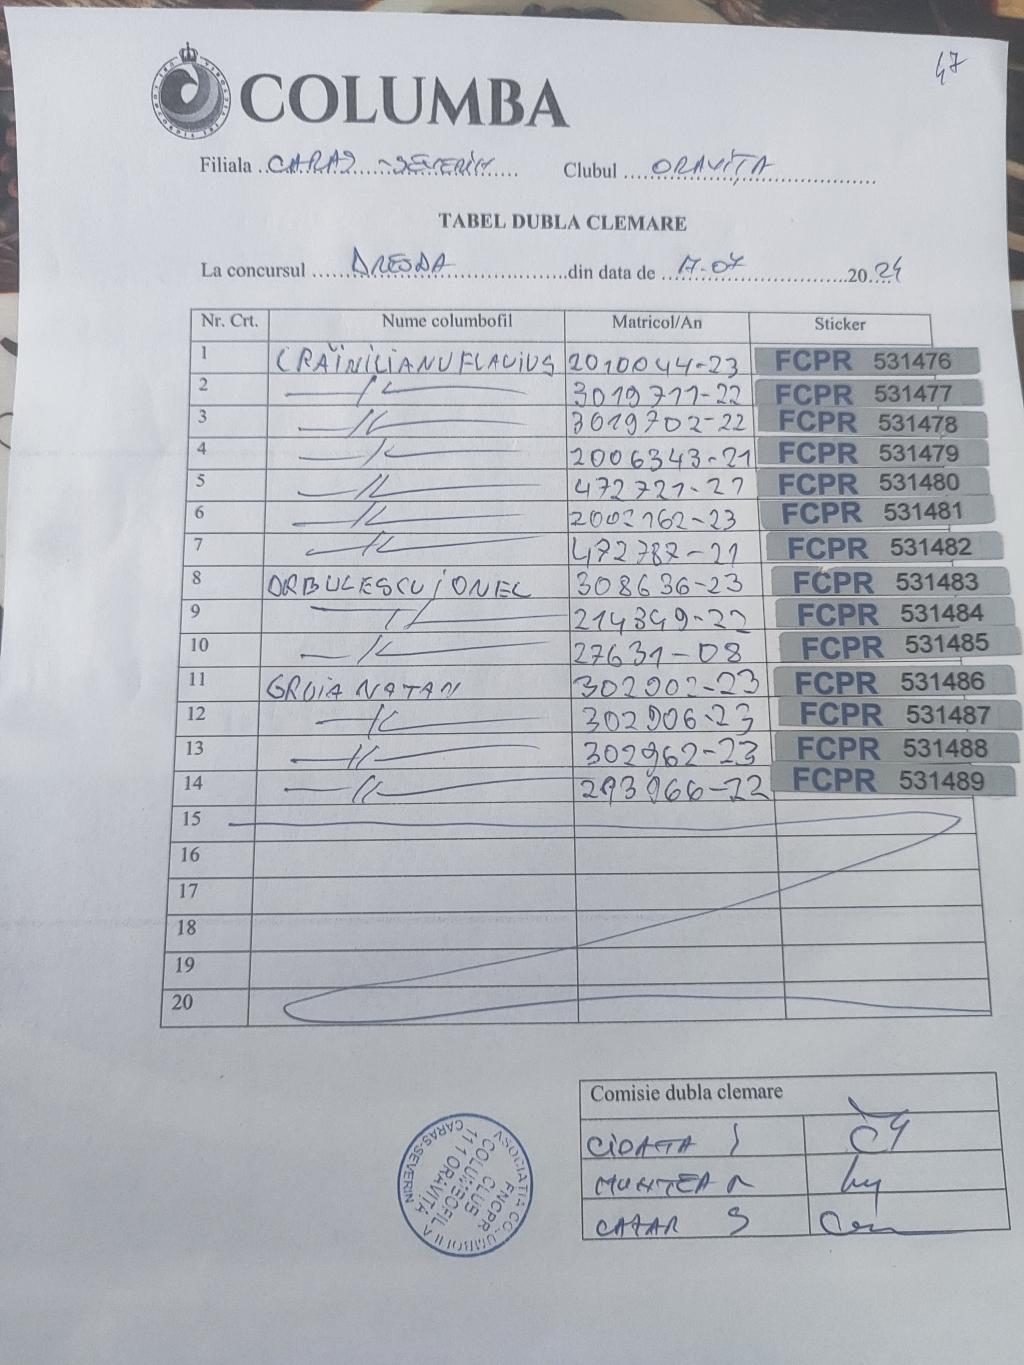 47
COLUMBA
Filiala CARAȘ-SEVERIN Clubul ORAVIȚA
TABEL DUBLA CLEMARE
La concursul DRESDA din data de 17-07 2024
Nr. Crt. Nume columbofil Matricol/An Sticker
1 CRĂINICIANU FLAVIUS 2010044-23 FCPR 531476
2 —//— 3019711-22 FCPR 531477
3 —//— 3019702-22 FCPR 531478
4 —//— 2006343-21 FCPR 531479
5 —//— 472721-21 FCPR 531480
6 —//— 2002162-23 FCPR 531481
7 —//— 472787-21 FCPR 531482
8 ORBULESCU IONEL 308636-23 FCPR 531483
9 —//— 214349-22 FCPR 531484
10 —//— 27631-08 FCPR 531485
11 GROIA NATAN 302902-23 FCPR 531486
12 —//— 302906-23 FCPR 531487
13 —//— 302962-23 FCPR 531488
14 —//— 293966-22 FCPR 531489
15
16
17
18
19
20
Comisie dubla clemare
MUNTEA N
CAZAR S
FNCPR
CLUB
COLUMBOFIL
111 ORAVIȚA
CARAS-SEVERIN